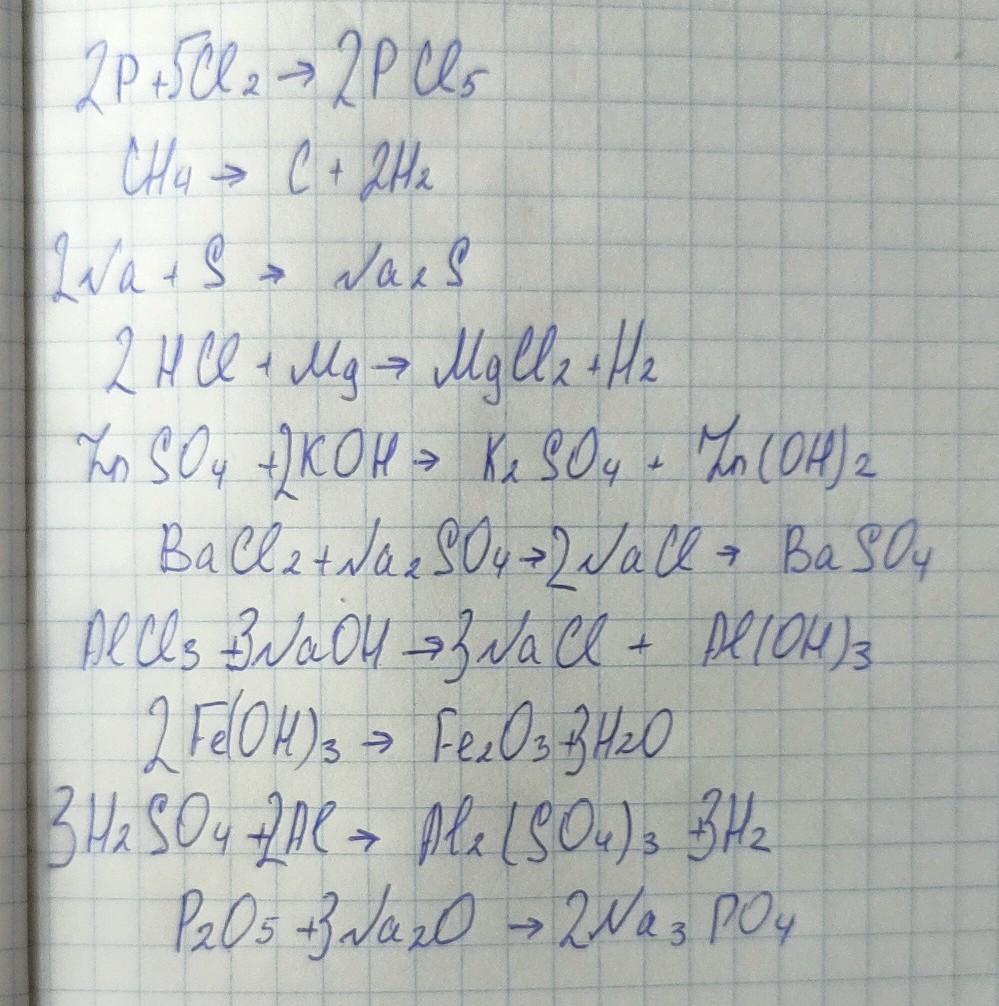 2P+5Cl₂→2PCl₅
CH₄→ C + 2H₂
2Na + S → Na₂S
2HCl + Mg → MgCl₂ + H₂
ZnSO₄ +2KOH → K₂SO₄ + Zn(OH)₂
BaCl₂+Na₂SO₄→2NaCl → BaSO₄
AlCl₃ +3NaOH →3NaCl + Al(OH)₃
2Fe(OH)₃ → Fe₂O₃+3H₂O
3H₂SO₄+2Al → Al₂(SO₄)₃ +3H₂
P₂O₅ +3Na₂O → 2Na₃PO₄